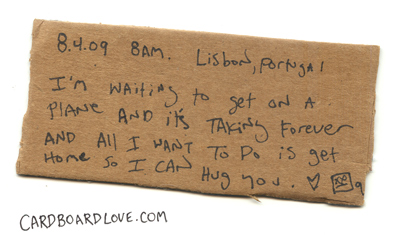 8.4.09 8AM. Lisbon, Portugal
I'm waiting to get on A
PlANE AND it's TAKing Forever
AND All I WANT To Do is get
Home so I CAN Hug you. ♡
CARDBOARDLOVE.COM